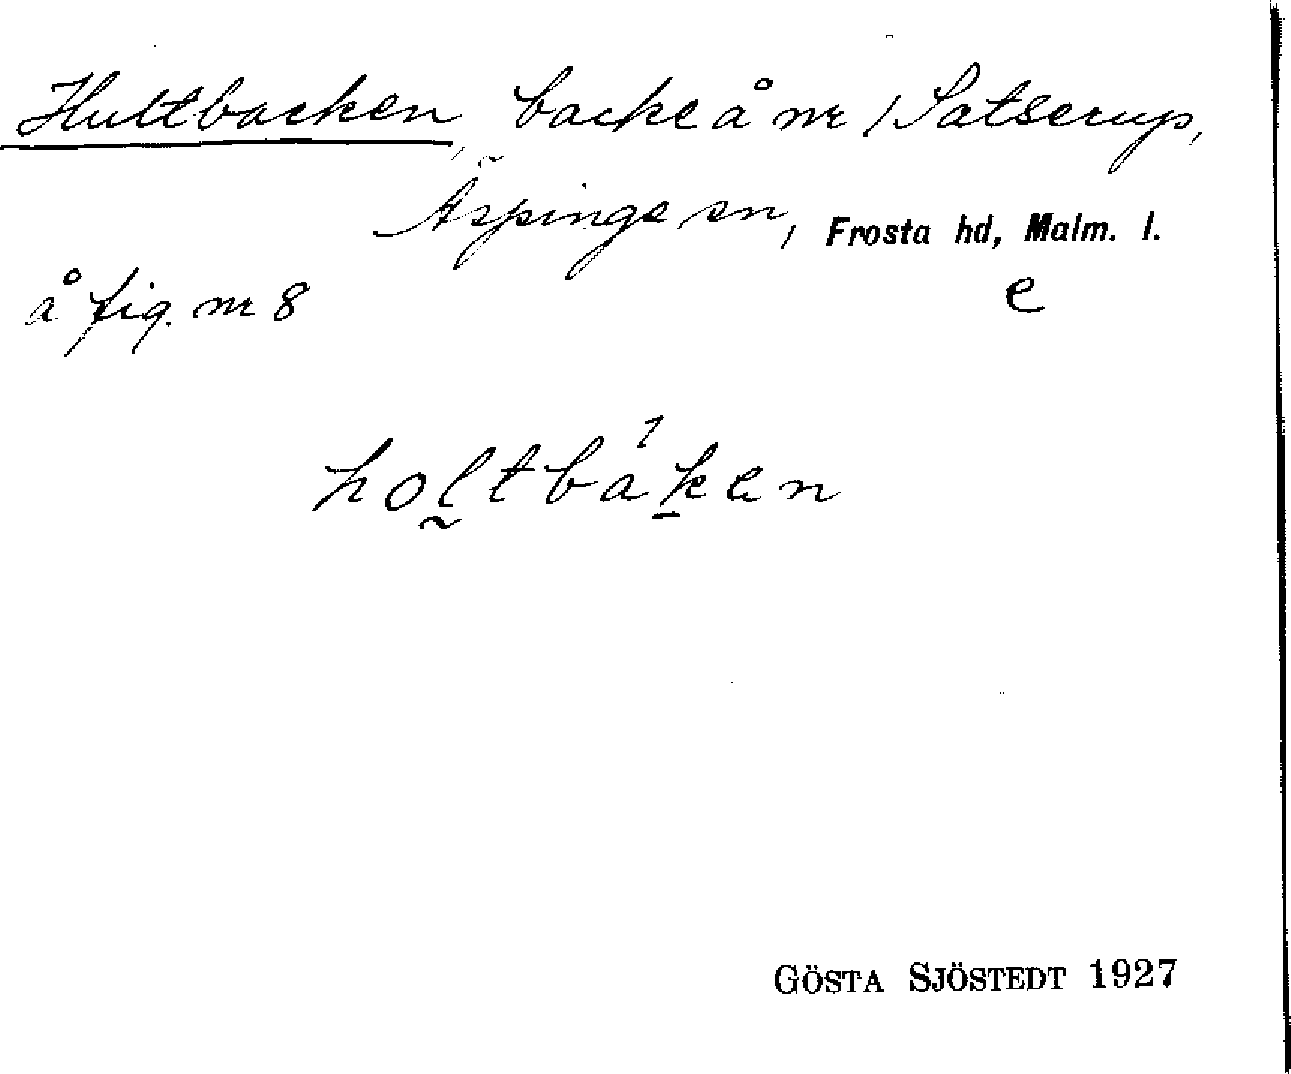 Hultbacken, backe å nr 1 Satserup,
Äspinge sn, Frosta hd, Malm. l.
å fig. nr 8 e
holtbáken
GÖSTA SJÖSTEDT 1927